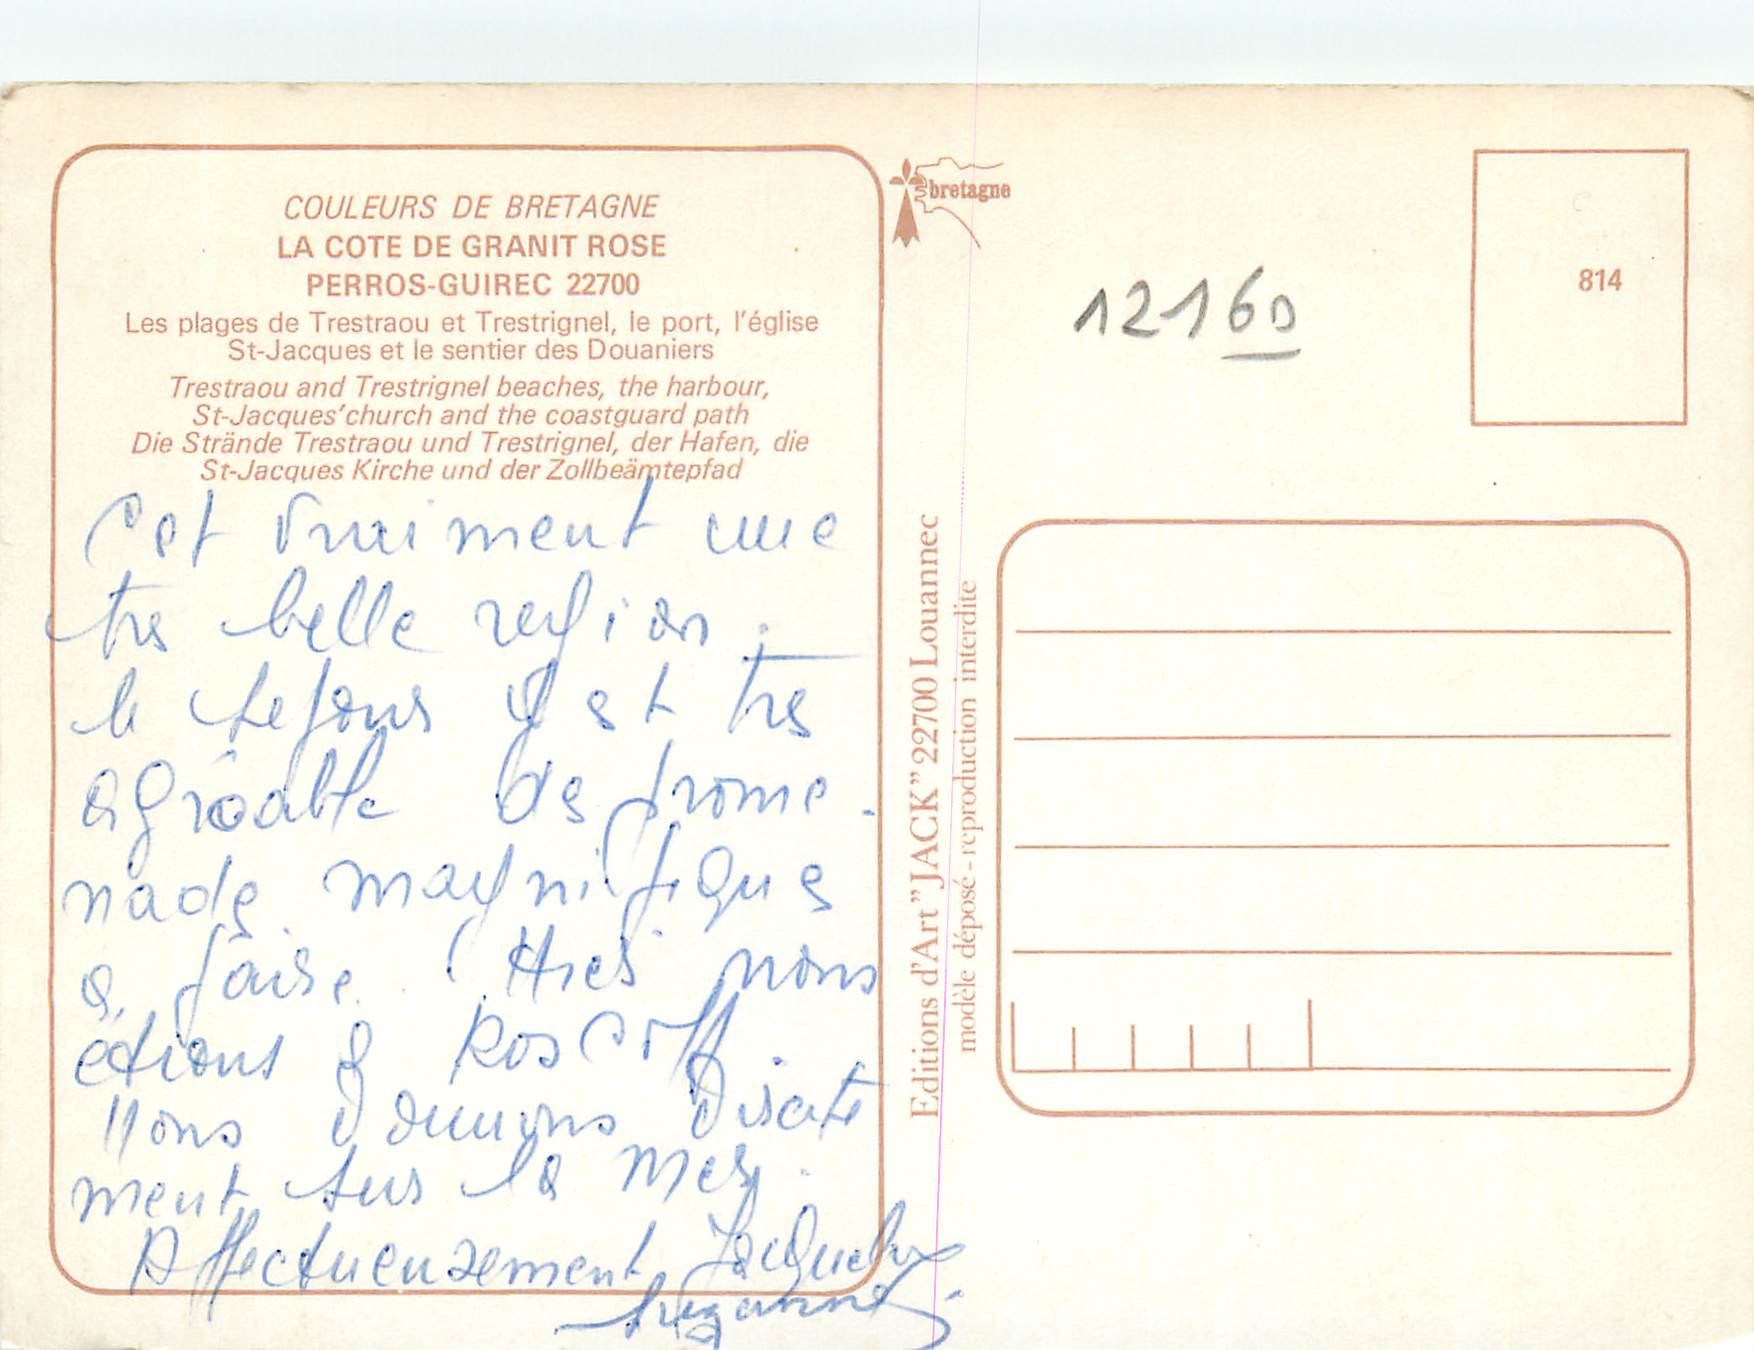 COULEURS DE BRETAGNE
LA COTE DE GRANIT ROSE
PERROS-GUIREC 22700
Les plages de Trestraou et Trestrignel, le port, l'église
St-Jacques et le sentier des Douaniers
Trestraou and Trestrignel beaches, the harbour,
St-Jacques'church and the coastguard path
Die Strände Trestraou und Trestrignel, der Hafen, die
St-Jacques Kirche und der Zollbeämtepfad
C'est vraiment une
très belle region.
le sejour y est très
agréable des prome-
nades magnifiques
a faire. Hier nous
étions a Roscoff
nous donnons directe
ment sur la mer.
Affectueusement Jacqueline
Suzanne
bretagne
12160
814
Editions d'Art "JACK" 22700 Louannec
modèle déposé - reproduction interdite